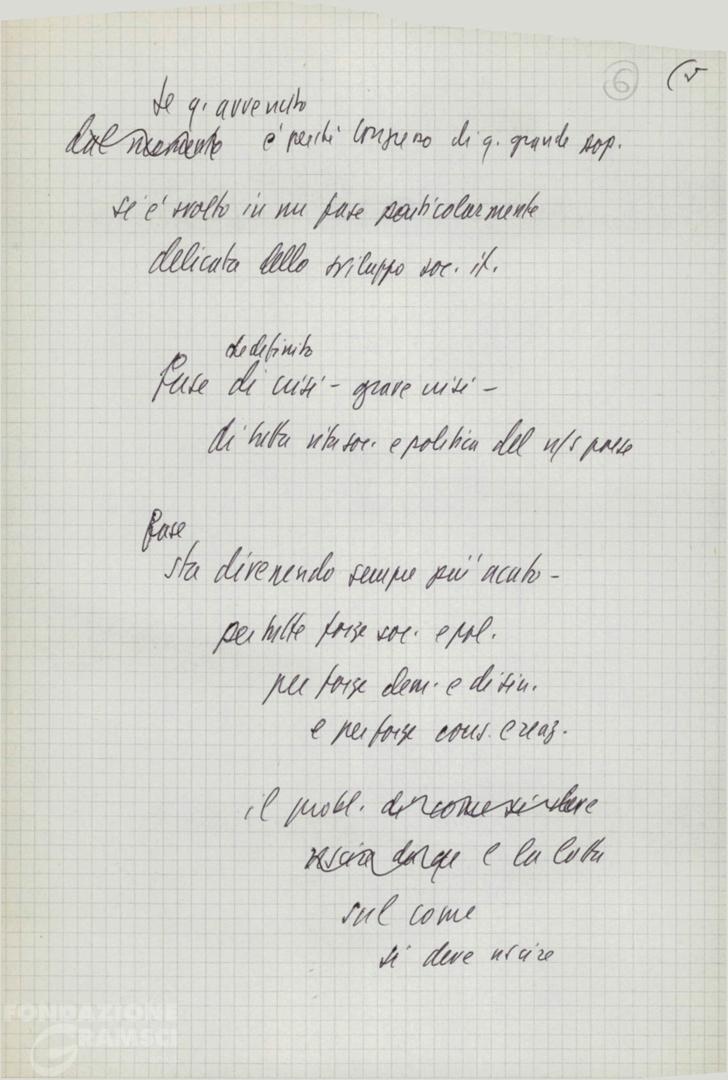 6 (5
Se q. avvenuto
dal momento è perché Congresso di q. grande rap.
si è svolto in una fase particolarmente
delicata dello sviluppo soc. it.
ho definito
fase di crisi - grave crisi -
di tutta vita soc. e politica del n/s paese
fase
sta divenendo sempre più acuto -
per tutte forze soc. e pol.
per forze dem. e di sin.
e per forze cons. e reaz.
il probl. di come si deve
uscire e la lotta
sul come
si deve uscire
FONDAZIONE
GRAMSCI